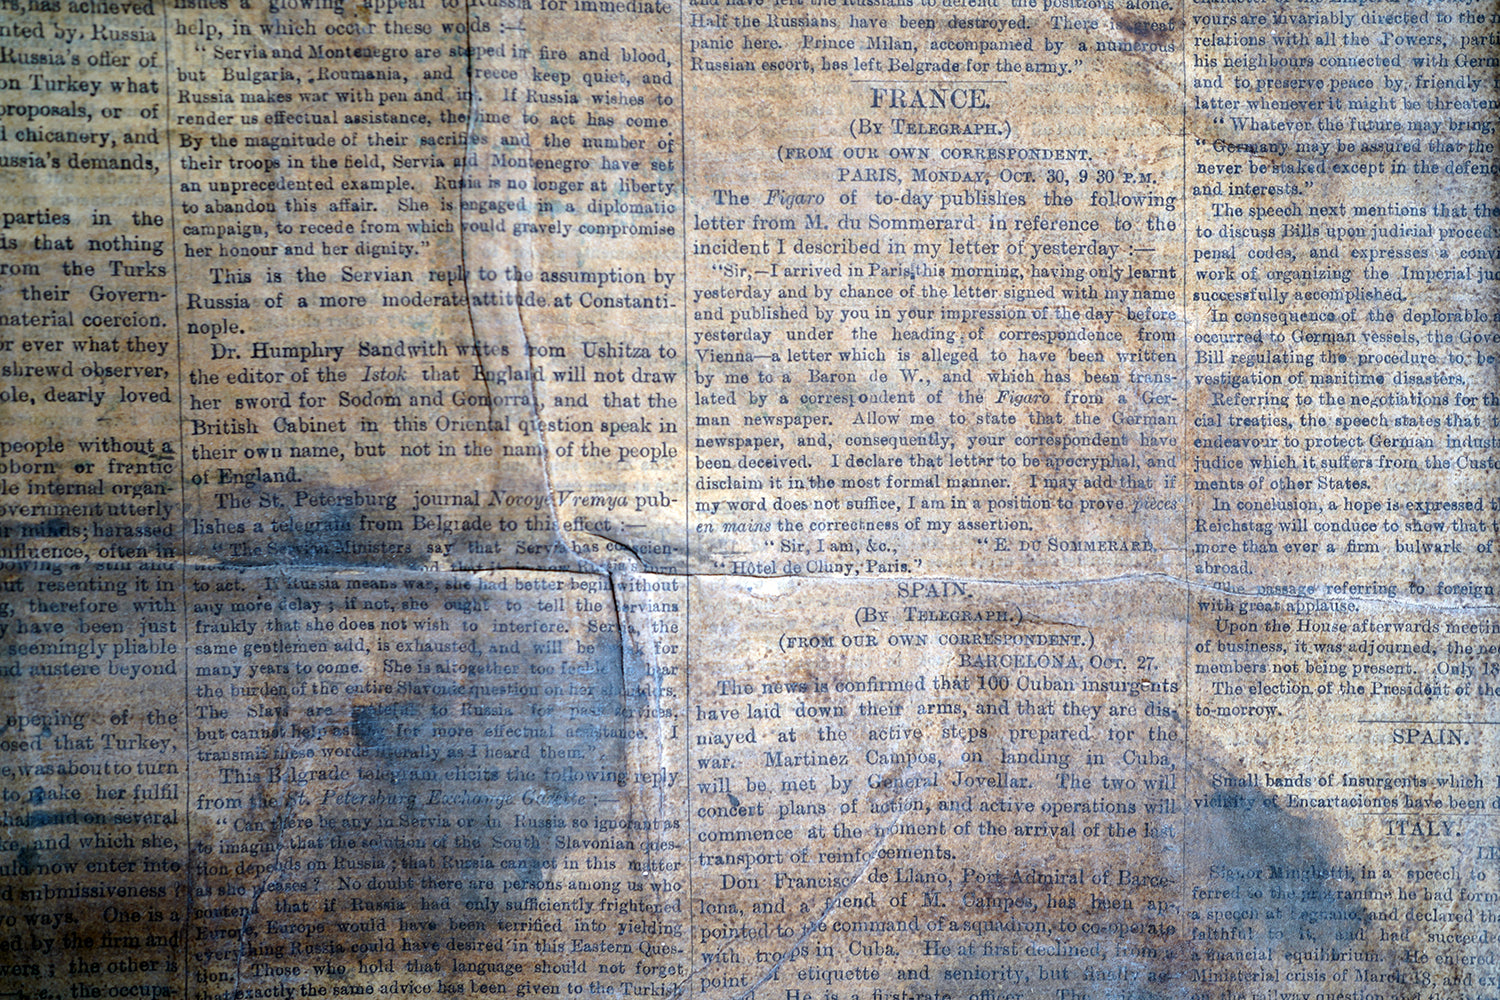 rs, has achieved
nted by Russia
Russia's offer of
on Turkey what
proposals, or of
l chicanery, and
ussia's demands,
parties in the
ds that nothing
rom the Turks
their Govern-
material coercion.
or ever what they
shrewd observer,
ole, dearly loved
people without a
oborn or frantic
le internal organ-
overnment utterly
ir minds; harassed
influence, often in
owing a stiff and
ut resenting it in
g, therefore with
y have been just
seemingly pliable
nd austere beyond
opening of the
osed that Turkey,
e, was about to turn
to make her fulfil
that and on several
ke, and which she,
uld now enter into
d submissiveness?
wo ways. One is a
ed by the firm and
wers; the other is
the occupa-
ishes a glowing appeal to Russia for immediate
help, in which occur these words :—
"Servia and Montenegro are steeped in fire and blood,
but Bulgaria, Roumania, and Greece keep quiet, and
Russia makes war with pen and ink. If Russia wishes to
render us effectual assistance, the time to act has come.
By the magnitude of their sacrifices and the number of
their troops in the field, Servia and Montenegro have set
an unprecedented example. Russia is no longer at liberty
to abandon this affair. She is engaged in a diplomatic
campaign, to recede from which would gravely compromise
her honour and her dignity."
This is the Servian reply to the assumption by
Russia of a more moderate attitude at Constanti-
nople.
Dr. Humphry Sandwith writes from Ushitza to
the editor of the Istok that England will not draw
her sword for Sodom and Gomorrah, and that the
British Cabinet in this Oriental question speak in
their own name, but not in the name of the people
of England.
The St. Petersburg journal Novoye Vremya pub-
lishes a telegram from Belgrade to this effect :—
"The Servian Ministers say that Servia has conscien-
and that it is now Russia's turn
to act. If Russia means war, she had better begin without
any more delay; if not, she ought to tell the Servians
frankly that she does not wish to interfere. Servia, the
same gentlemen add, is exhausted, and will be for
many years to come. She is altogether too feeble to bear
the burden of the entire Slavonic question on her shoulders.
The Slavs are grateful to Russia for past services,
but cannot help asking for more effectual assistance. I
transmit these words literally as I heard them."
This Belgrade telegram elicits the following reply
from the St. Petersburg Exchange Gazette :—
"Can there be any in Servia or in Russia so ignorant as
to imagine that the solution of the South Slavonian ques-
tion depends on Russia; that Russia can act in this matter
as she pleases? No doubt there are persons among us who
contend that if Russia had only sufficiently frightened
Europe, Europe would have been terrified into yielding
everything Russia could have desired in this Eastern Ques-
tion. Those who hold that language should not forget
that exactly the same advice has been given to the Turkish
and have left the Russians to defend the positions alone.
Half the Russians have been destroyed. There is great
panic here. Prince Milan, accompanied by a numerous
Russian escort, has left Belgrade for the army."
FRANCE.
(BY TELEGRAPH.)
(FROM OUR OWN CORRESPONDENT.
PARIS, MONDAY, OCT. 30, 9 30 P.M.
The Figaro of to-day publishes the following
letter from M. du Sommerard in reference to the
incident I described in my letter of yesterday :—
"Sir,—I arrived in Paris this morning, having only learnt
yesterday and by chance of the letter signed with my name
and published by you in your impression of the day before
yesterday under the heading of correspondence from
Vienna—a letter which is alleged to have been written
by me to a Baron de W., and which has been trans-
lated by a correspondent of the Figaro from a Ger-
man newspaper. Allow me to state that the German
newspaper, and, consequently, your correspondent have
been deceived. I declare that letter to be apocryphal, and
disclaim it in the most formal manner. I may add that if
my word does not suffice, I am in a position to prove pièces
en mains the correctness of my assertion.
"Sir, I am, &c., "E. DU SOMMERARD.
"Hôtel de Cluny, Paris."
SPAIN.
(BY TELEGRAPH.)
(FROM OUR OWN CORRESPONDENT.)
BARCELONA, OCT. 27.
The news is confirmed that 100 Cuban insurgents
have laid down their arms, and that they are dis-
mayed at the active steps prepared for the
war. Martinez Campos, on landing in Cuba,
will be met by General Jovellar. The two will
concert plans of action, and active operations will
commence at the moment of the arrival of the last
transport of reinforcements.
Don Francisco de Llano, Port-Admiral of Barce-
lona, and a friend of M. Campos, has been ap-
pointed to the command of a squadron, to co-operate
with troops in Cuba. He at first declined, from a
point of etiquette and seniority, but finally ac-
He is a first-rate officer. The
character of the Emperor
vours are invariably directed to the
relations with all the Powers, parti
his neighbours connected with Germ
and to preserve peace by friendly
latter whenever it might be threaten
"Whatever the future may bring,"
"Germany may be assured that the
never be staked except in the defence
and interests."
The speech next mentions that the
to discuss Bills upon judicial proced
penal codes, and expresses a convi
work of organizing the Imperial jud
successfully accomplished.
In consequence of the deplorable a
occurred to German vessels, the Gove
Bill regulating the procedure to be
vestigation of maritime disasters.
Referring to the negotiations for th
cial treaties, the speech states that t
endeavour to protect German indust
judice which it suffers from the Custo
ments of other States.
In conclusion, a hope is expressed t
Reichstag will conduce to show that t
more than ever a firm bulwark of
abroad.
The passage referring to foreign
with great applause.
Upon the House afterwards meetin
of business, it was adjourned, the nec
members not being present. Only 18
The election of the President of the
to-morrow.
SPAIN.
Small bands of Insurgents which
vicinity of Encartaciones have been d
ITALY.
Signor Minghetti, in a speech to
ferred to the programme he had form
a speech at Legnano, and declared tha
faithful to it, and had succeede
a financial equilibrium. He entered
Ministerial crisis of March 18, and ex
on the railway question